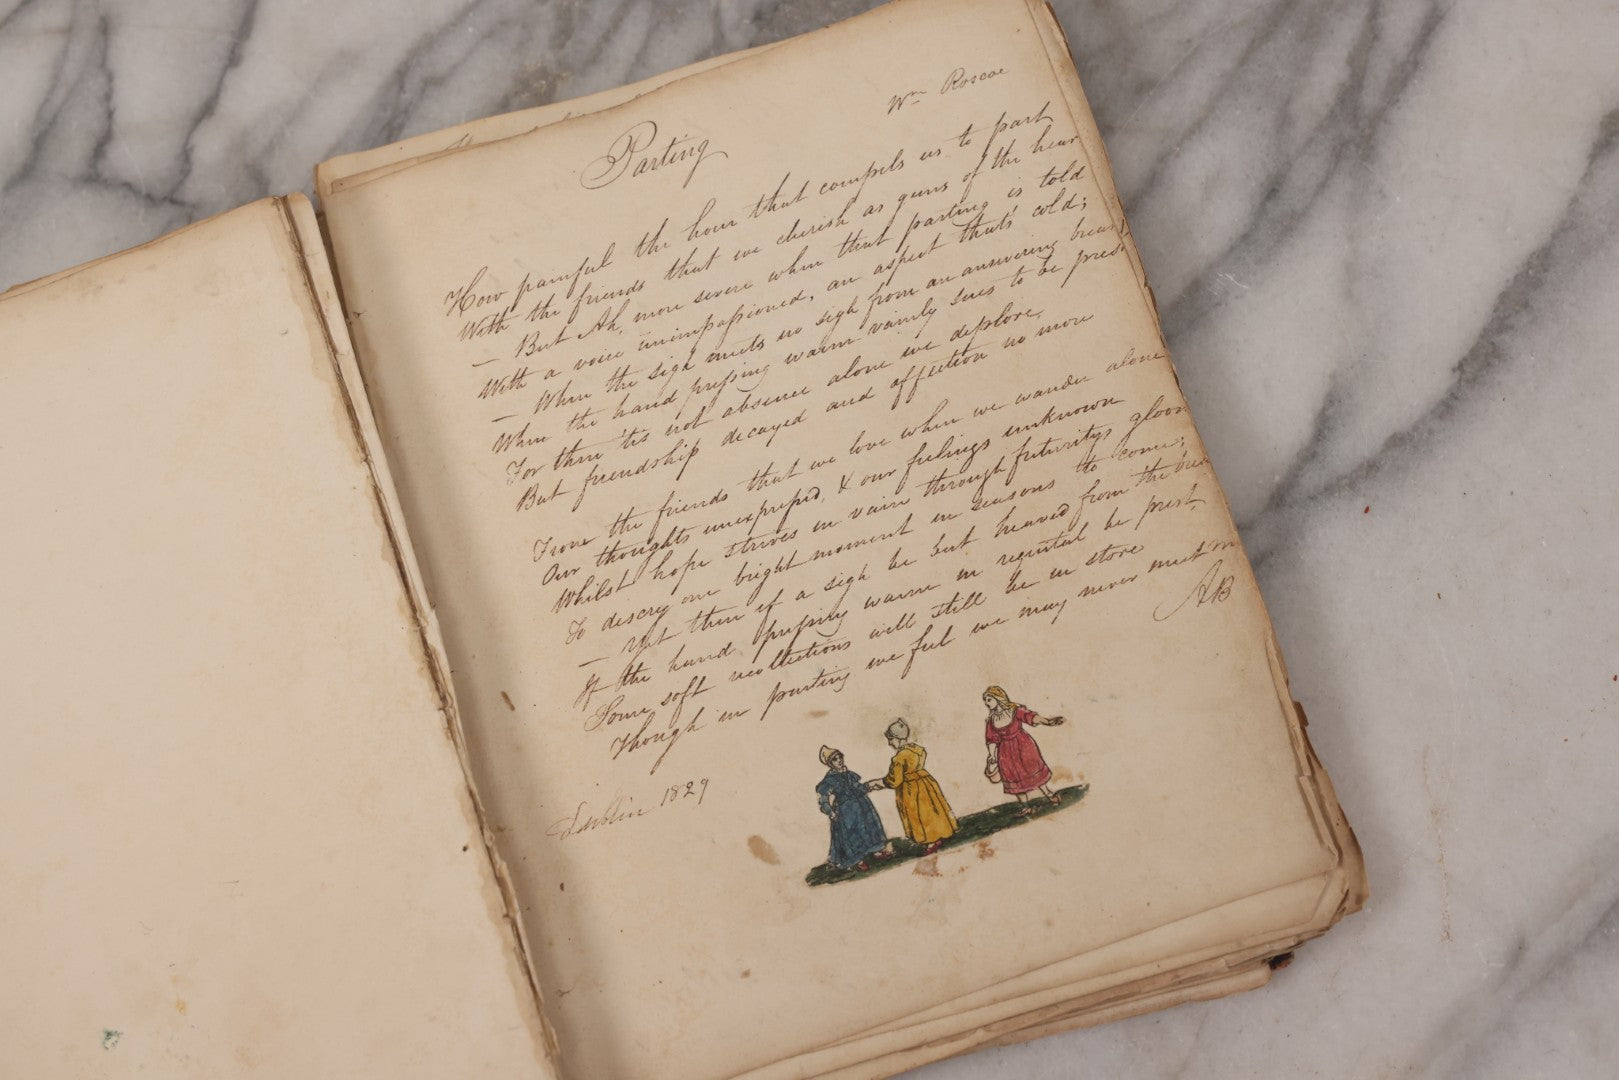 Wm Roscoe
Parting
How painful the hour that compels us to part
With the friends that we cherish as gems of the hear
— But Ah, more severe when that parting is told
With a voice unimpassioned, an aspect thats cold;
— When the sigh meets no sigh from an answering breast
When the hand pressing warm vainly sues to be prest
For then 'tis not absence alone we deplore,
But friendship decayed and affection no more
From the friends that we love when we wander alone
Our thoughts unexpress'd, & our feelings unknown
Whilst hope strives in vain through futuritys gloom
To descry one bright moment in seasons to come;
— Yet then if a sigh be but heaved from the brea
If the hand pressing warm in requital be prest,
Some soft recollections will still be in store
Though in parting we feel we may never meet m
AB
Dublin 1829